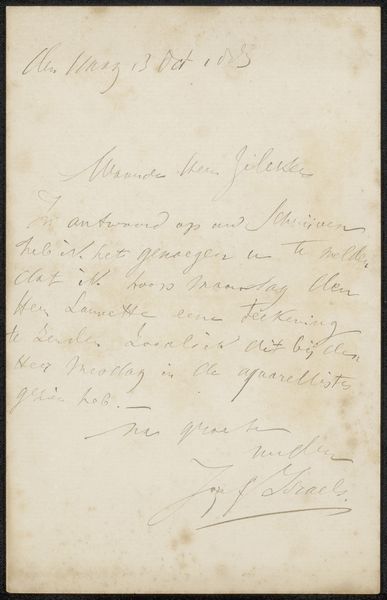 den Haag 13 Oct 1885
Waarde Heer Zilcken
In antwoord op uw schrijven
heb ik het genoegen u te melden
dat ik voor Maandag den
Heer Launette eene teekening
te zenden zooals ik dit bij den
Heer Mesdag in de aquarellisten
gezien heb.
Met groete
uw dien
Jozef Israels.